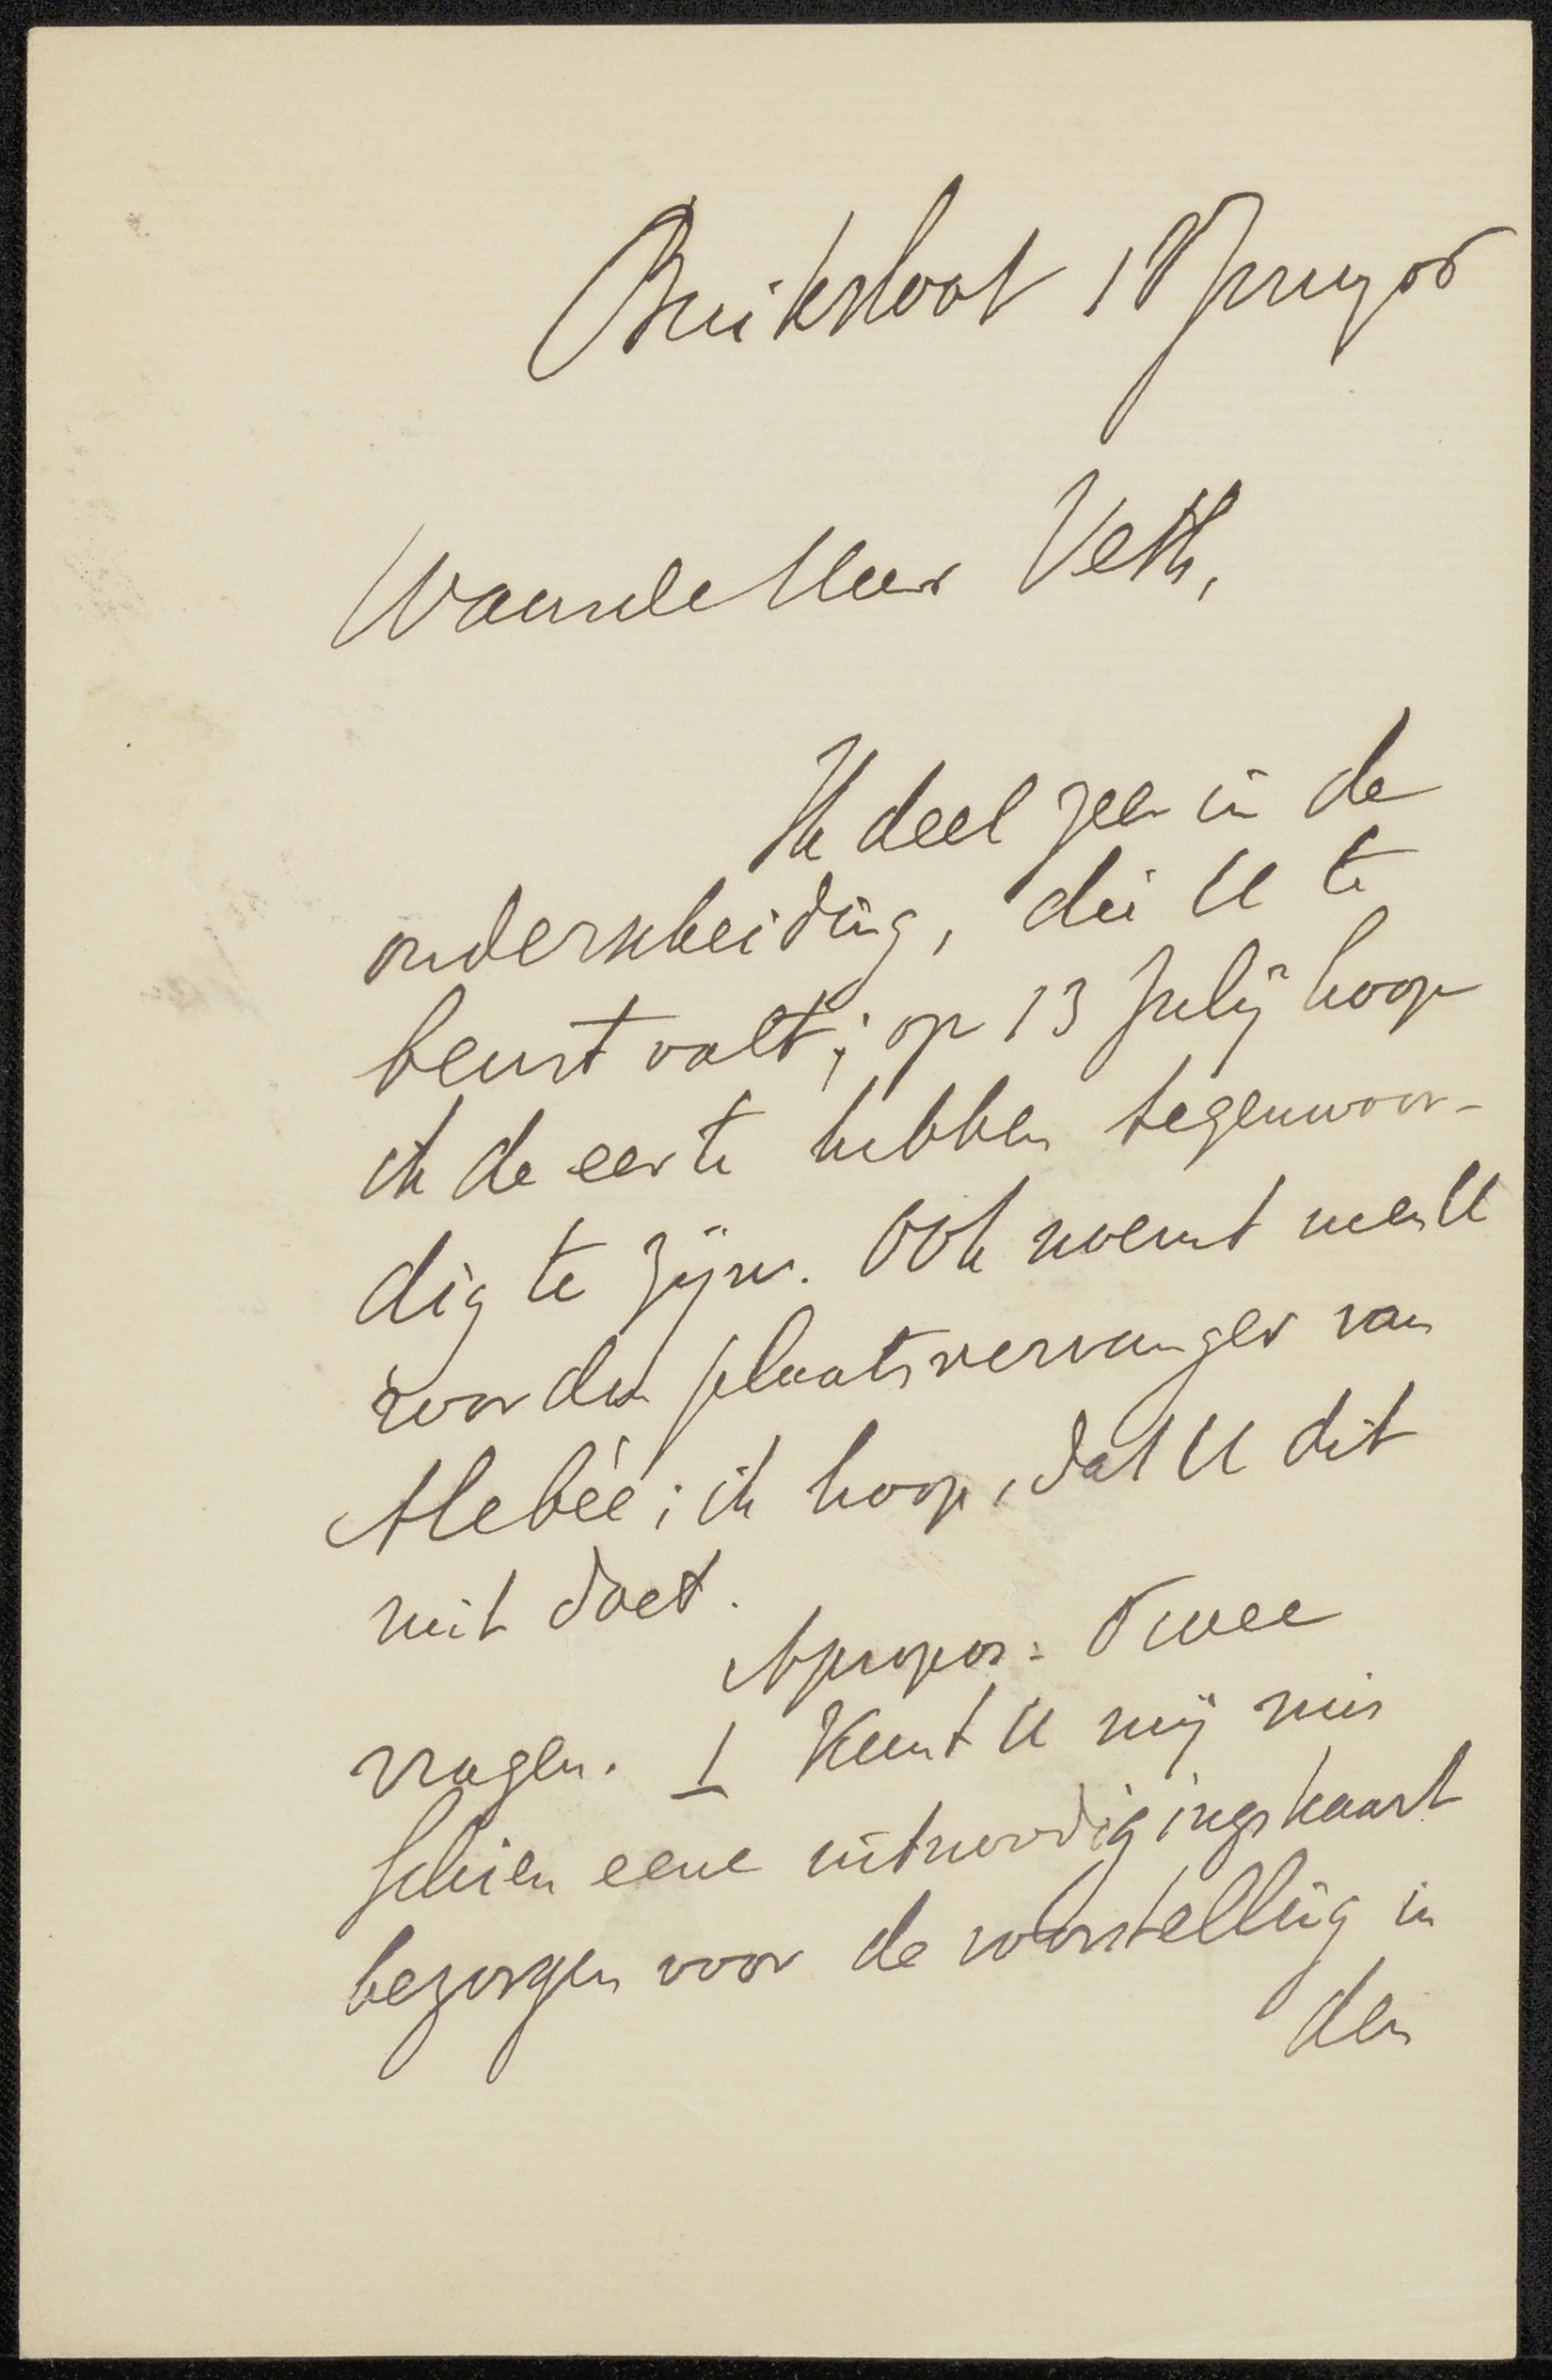 Buiksloot 18 Juny 06
Waarde Heer Veth,
Ik deel zeer in de
onderscheiding, die U te
beurt valt; op 13 July hoop
ik de eer te hebben tegenwoor-
dig te zijn. Ook noemt men U
voor den plaatsvervanger van
Alebéé; ik hoop, dat U dit
niet doet.
Apropos: Twee
vragen. 1 Kunt U mij mis
schien eene uitnoodigingskaart
bezorgen voor de voorstelling in
den